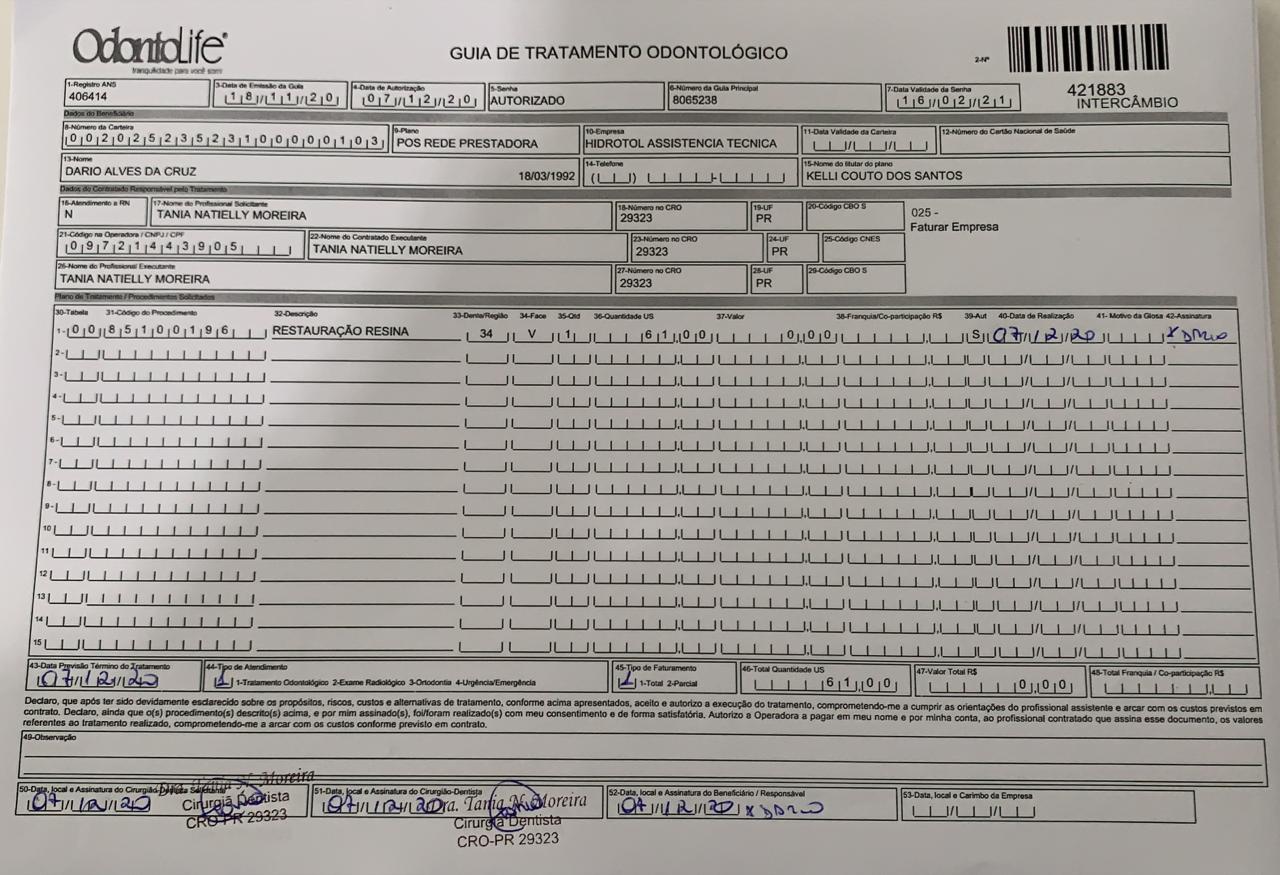 OdontoLife®
tranquilidade para você sorrir
GUIA DE TRATAMENTO ODONTOLÓGICO
2-Nº
421883
INTERCÂMBIO
1-Registro ANS
406414
3-Data de Emissão da Guia
18/11/20
4-Data de Autorização
07/12/20
5-Senha
AUTORIZADO
6-Número da Guia Principal
8065238
7-Data Validade da Senha
16/02/21
Dados do Beneficiário
8-Número da Carteira
00202523523100000103
9-Plano
POS REDE PRESTADORA
10-Empresa
HIDROTOL ASSISTENCIA TECNICA
11-Data Validade da Carteira
12-Número do Cartão Nacional de Saúde
13-Nome
DARIO ALVES DA CRUZ 18/03/1992
14-Telefone
15-Nome do titular do plano
KELLI COUTO DOS SANTOS
Dados do Contratado Responsável pelo Tratamento
16-Atendimento a RN
N
17-Nome do Profissional Solicitante
TANIA NATIELLY MOREIRA
18-Número no CRO
29323
19-UF
PR
20-Código CBO S
025 -
Faturar Empresa
21-Código na Operadora / CNPJ / CPF
09721443905
22-Nome do Contratado Executante
TANIA NATIELLY MOREIRA
23-Número no CRO
29323
24-UF
PR
25-Código CNES
26-Nome do Profissional Executante
TANIA NATIELLY MOREIRA
27-Número no CRO
29323
28-UF
PR
29-Código CBO S
Plano de Tratamento / Procedimentos Solicitados
30-Tabela 31-Código do Procedimento 32-Descrição 33-Dente/Região 34-Face 35-Qtd 36-Quantidade US 37-Valor 38-Franquia/Co-participação R$ 39-Aut 40-Data de Realização 41- Motivo da Glosa 42-Assinatura
1- 00 85100196 RESTAURAÇÃO RESINA 34 V 1 61,00 0,00 S 07/12/20
2-
3-
4-
5-
6-
7-
8-
9-
10
11
12
13
14
15
43-Data Previsão Término do Tratamento
07/12/20
44-Tipo de Atendimento
1 1-Tratamento Odontológico 2-Exame Radiológico 3-Ortodontia 4-Urgência/Emergência
45-Tipo de Faturamento
1 1-Total 2-Parcial
46-Total Quantidade US
61,00
47-Valor Total R$
0,00
48-Total Franquia / Co-participação R$
Declaro, que após ter sido devidamente esclarecido sobre os propósitos, riscos, custos e alternativas de tratamento, conforme acima apresentados, aceito e autorizo a execução do tratamento, comprometendo-me a cumprir as orientações do profissional assistente e arcar com os custos previstos em
contrato. Declaro, ainda que o(s) procedimento(s) descrito(s) acima, e por mim assinado(s), foi/foram realizado(s) com meu consentimento e de forma satisfatória. Autorizo a Operadora a pagar em meu nome e por minha conta, ao profissional contratado que assina esse documento, os valores
referentes ao tratamento realizado, comprometendo-me a arcar com os custos conforme previsto em contrato.
49-Observação
50-Data, local e Assinatura do Cirurgião-Dentista Solicitante
07/12/20
Dra. Tania N. Moreira
Cirurgiã Dentista
CRO-PR 29323
51-Data, local e Assinatura do Cirurgião-Dentista
07/12/20
Dra. Tania N. Moreira
Cirurgiã Dentista
CRO-PR 29323
52-Data, local e Assinatura do Beneficiário / Responsável
07/12/20
53-Data, local e Carimbo da Empresa